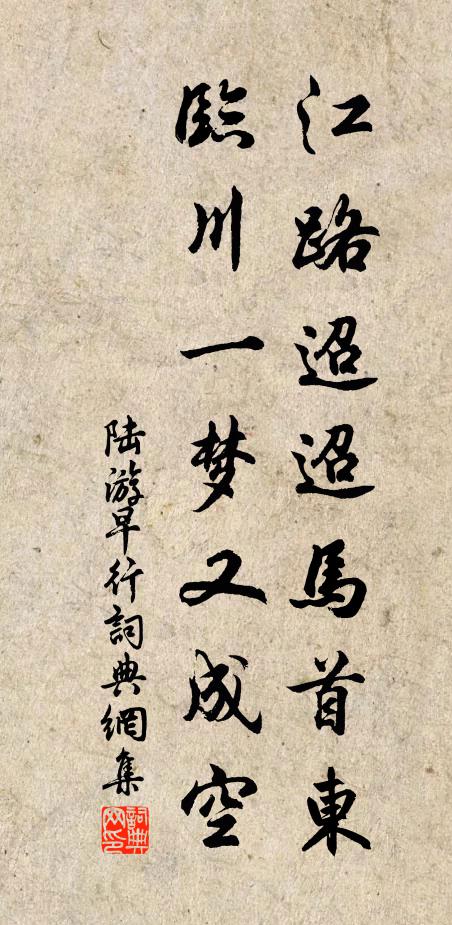 江路迢迢馬首東
臨川一梦又成空
陆游早行詞典網集
詞典网印